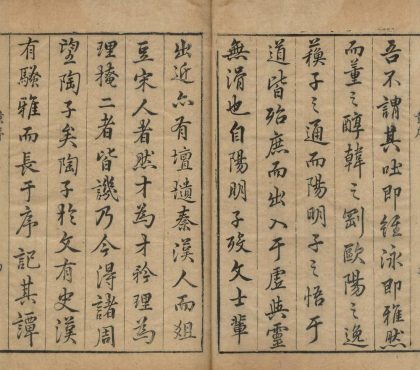 吾不謂其吐即經泳即雅然
而董之醇韓之劌歐陽之逸
蘇子之通而陽明子之悟于
道皆殆庶而出入于虛與靈
無滑也自陽明子歿文士輩
出近亦有壇𫎇秦漢人而俎
豆宋人者然才為才矜理為
理掩二者皆譏乃今得諸周
望陶子矣陶子於文有史漢
有騷雅而長于序記其譚